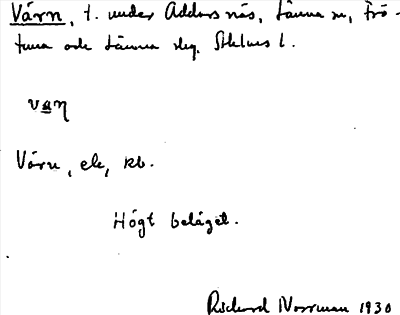 Värn, t. under Addarsnäs, Länna sn, Frö-
tuna och Länna skg. Sthlms l.
van
Värn, ek, kb.
Högt beläget.
Richard Norrman 1930